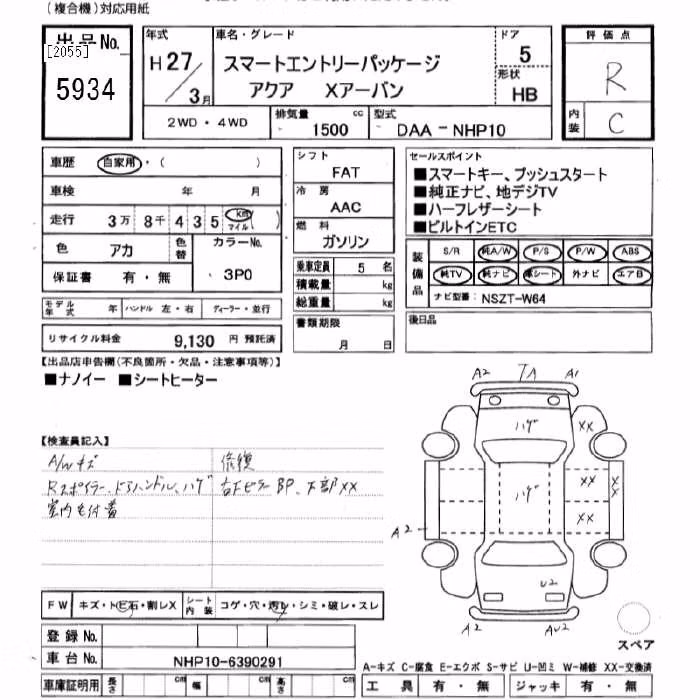 (複合機)対応用紙
出品No.
[2055]
5934
年式
H27/3月
車名・グレード
スマートエントリーパッケージ
アクア Xアーバン
ドア
5
形状
HB
評価点
R
内装
C
2WD・4WD
排気量
1500 cc
型式
DAA-NHP10
車歴 自家用・( )
車検 年 月
走行 3万 8千 4 3 5 km マイル ( )
色 アカ 色替
カラーNo.
3P0
保証書 有・無
モデル年式 年 ハンドル 左・右 ディーラー・並行
リサイクル料金 9,130 円 預託済
シフト
FAT
冷房
AAC
燃料
ガソリン
乗車定員 5 名
積載量 kg
総重量 kg
書類期限
月 日
セールスポイント
■スマートキー、プッシュスタート
■純正ナビ、地デジTV
■ハーフレザーシート
■ビルトインETC
装備品
S/R 純A/W P/S P/W ABS
純TV 純ナビ 革シート 外ナビ エアB
ナビ型番: NSZT-W64
後日品
【出品店申告欄(不良箇所・欠品・注意事項等)】
■ナノイー ■シートヒーター
【検査員記入】
A/Wキズ
Rスポイラー、ドアハンドル、ハゲ
室内毛付着
修復
右Fピラー BP、下部XX
A2 TA A1
ハゲ XX
ハゲ XX XX
XX
A2
U2
A2 AU2
スペア
FW キズ・トビ石・割レX
シート内装 コゲ・穴・汚レ・シミ・破レ・スレ
登録No.
車台No. NHP10-6390291
車庫証明用 長さ cm 幅 cm 高さ cm
A-キズ C-腐食 E-エクボ S-サビ U-凹ミ W-補修 XX-交換済
工具 有・無 ジャッキ 有・無